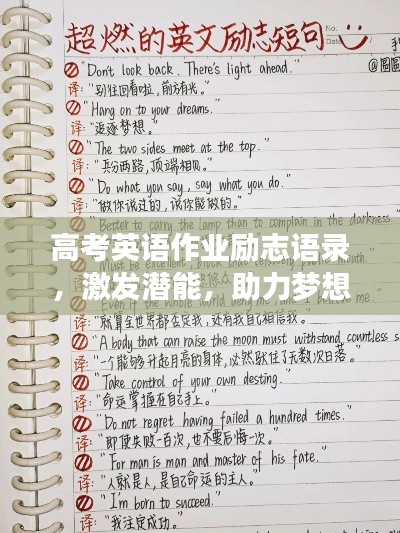 超燃的英文励志短句
No.
Date
@圈圈
"Don't look back. There's light ahead."
译:"别往回看啦,前方有光。"
"Hang on to your dreams."
译:"追逐梦想。"
"The two sides meet at the top."
译:"兵分两路,顶端相见。"
"Do what you say, say what you do."
译:"做你说过的,说你能做的。"
"Better to carry the lamp than to complain in the darkness.
高考英语作业励志语录
,激发潜能,助力梦想
译:"就算全世界都否定我,还有我自己相信我。"
"A body that can raise the moon must withstand countless s
译:"一个能够升起月亮的身体,必然驮住了无数次日落。"
"Take control of your own desting."
译:"命运掌握在自己手上。"
"Do not regret having failed a hundred times.
译:"即使失败一百次,也不要后悔一次。"
"For man is man and master of his fate."
译:"人就是人,是自己命运的主人。"
"I'm born to succeed."
译:"我注定成功。"